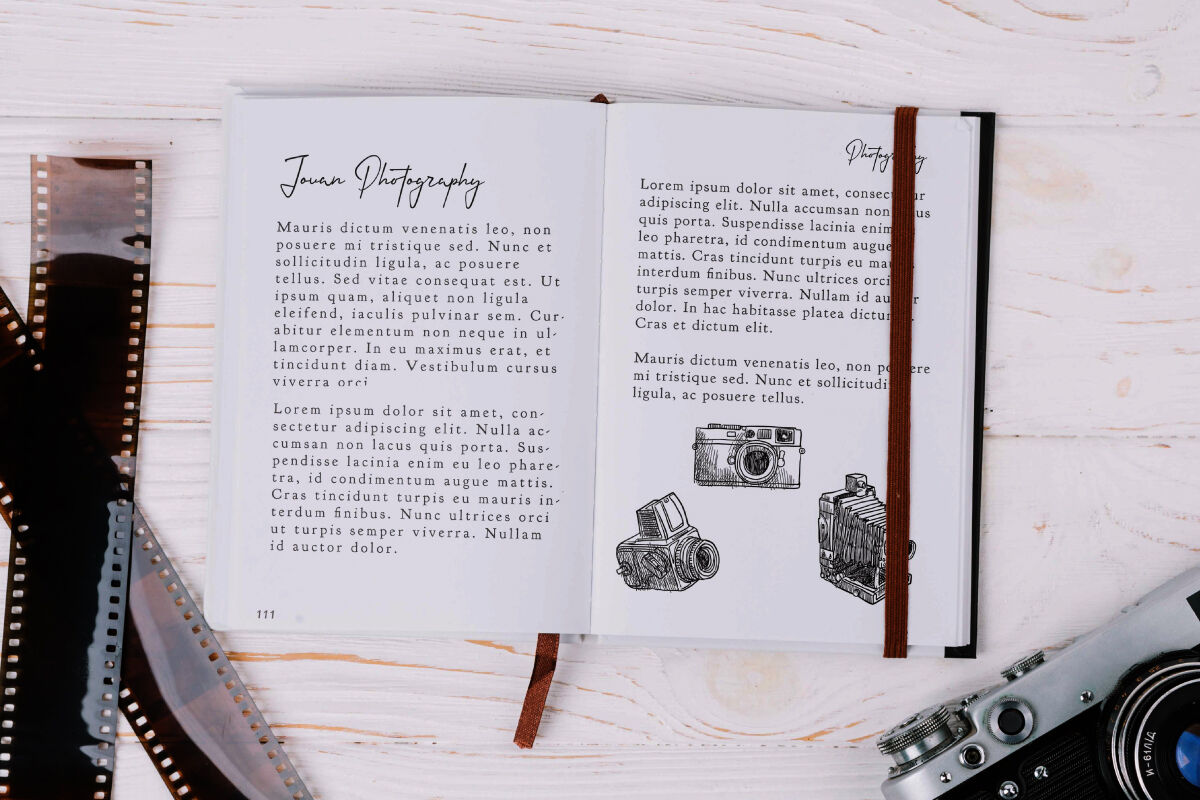 Jouan Photography
Mauris dictum venenatis leo, non
posuere mi tristique sed. Nunc et
sollicitudin ligula, ac posuere
tellus. Sed vitae consequat est. Ut
ipsum quam, aliquet non ligula
eleifend, iaculis pulvinar sem. Cur-
abitur elementum non neque in ul-
lamcorper. In eu maximus erat, et
tincidunt diam. Vestibulum cursus
viverra orci
Lorem ipsum dolor sit amet, con-
sectetur adipiscing elit. Nulla ac-
cumsan non lacus quis porta. Sus-
pendisse lacinia enim eu leo phare-
tra, id condimentum augue mattis.
Cras tincidunt turpis eu mauris in-
terdum finibus. Nunc ultrices orci
ut turpis semper viverra. Nullam
id auctor dolor.
111
Photography
Lorem ipsum dolor sit amet,
adipiscing elit. Nulla accumsan non
quis porta. Suspendisse lacinia enim
leo pharetra, id condimentum augue
mattis. Cras tincidunt turpis eu
interdum finibus. Nunc ultrices orci
turpis semper viverra. Nullam id
dolor. In hac habitasse platea
Cras et dictum elit.
Mauris dictum venenatis leo, non
mi tristique sed. Nunc et
ligula, ac posuere tellus.
И-61Л/Д